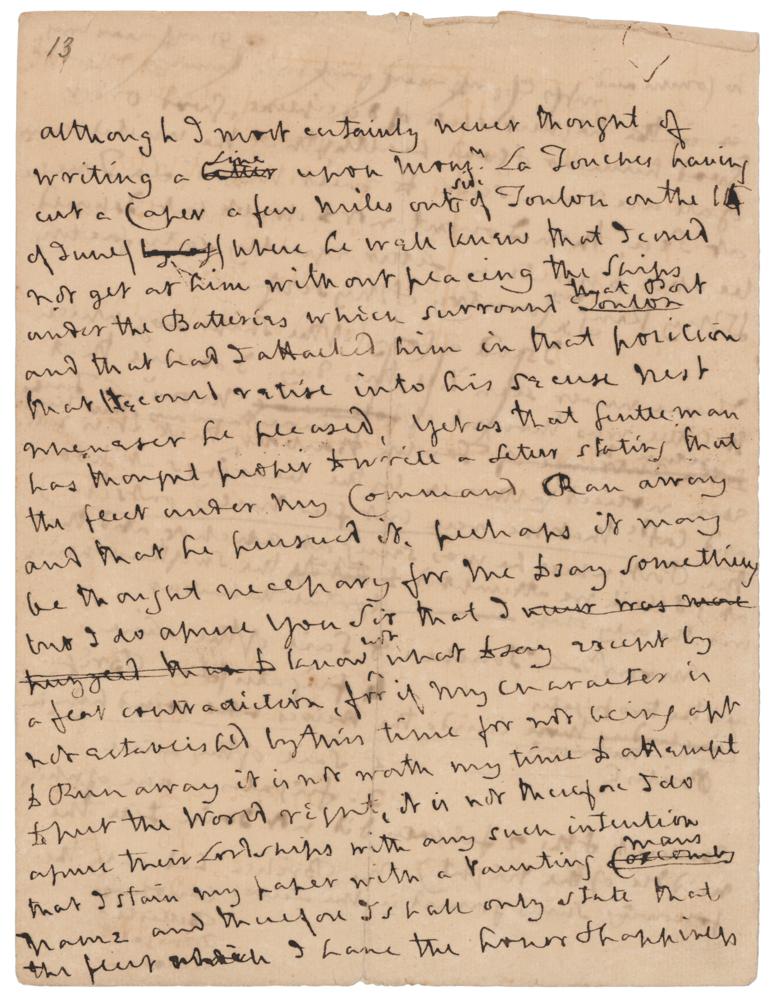 13
although I most certainly never thought of
writing a Line upon Monsr. La Touches having
cut a Caper a few Miles outside of Toulon on the 14
of June, where he well knew that I could
not get at him without placing the Ships
under the Batteries which surround that Port
and that had I attacked him in that position
that He could retire into his secure nest
whenever he pleased, yet as that gentleman
has thought proper to write a letter stating that
the fleet under my Command Ran away
and that he pursued it. perhaps it may
be thought necessary for me to say something
but I do assure you Sir that I never was more
puzzled than to know not what to say except by
a flat contradiction, for if my character is
not established by this time for not being apt
to Run away it is not worth my time to attempt
to put the World right, it is not therefore I do
assure their Lordships with any such intention
that I stain my paper with a vaunting mans Coxcombs
Name and therefore I shall only state that
the fleet which I have the honor & happiness